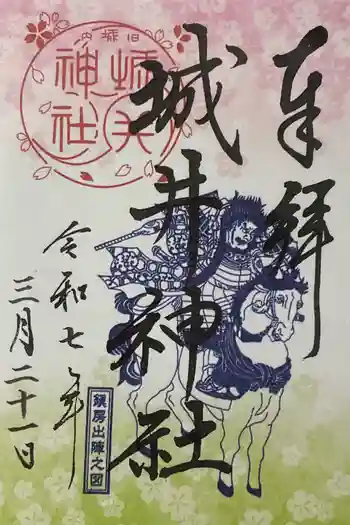 奉拝
城井神社
令和七年
三月二十一日
旧城内
城井
神社
鎮房出陣之図